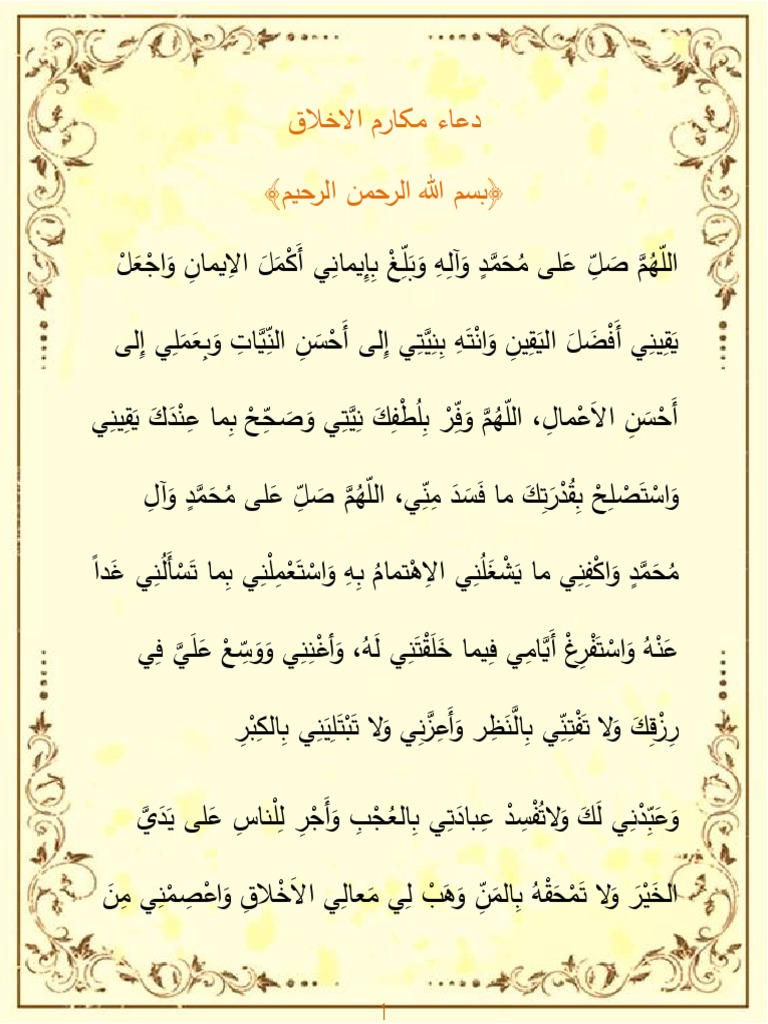 دعاء مكارم الاخلاق
﴿بسم الله الرحمن الرحيم﴾
اللّهُمَّ صَلِّ عَلى مُحَمَّدٍ وَآلِهِ وَبَلِّغْ بِإِيمانِي أَكْمَلَ الاِيمانِ وَاجْعَلْ
يَقِينِي أَفْضَلَ اليَقِينِ وَانْتَهِ بِنِيَّتِي إِلى أَحْسَنِ النِّيَّاتِ وَبِعَمَلِي إِلى
أَحْسَنِ الاَعْمالِ، اللّهُمَّ وَفِّرْ بِلُطْفِكَ نِيَّتِي وَصَحِّحْ بِما عِنْدَكَ يَقِينِي
وَاسْتَصْلِحْ بِقُدْرَتِكَ ما فَسَدَ مِنِّي، اللّهُمَّ صَلِّ عَلى مُحَمَّدٍ وَآلِ
مُحَمَّدٍ وَاكْفِنِي ما يَشْغَلُنِي الاِهْتمامُ بِهِ وَاسْتَعْمِلْنِي بِما تَسْأَلُنِي غَداً
عَنْهُ وَاسْتَفْرِغْ أَيَّامِي فِيما خَلَقْتَنِي لَهُ، وَأغْنِنِي وَوَسِّعْ عَلَيَّ فِي
رِزْقِكَ وَلا تَفْتِنِّي بِالَّنَظِر وَأَعِزَّنِي وَلا تَبْتَلِيَنِي بِالكِبْرِ
وَعَبِّدْنِي لَكَ وَلاتُفْسِدْ عِبادَتِي بِالعُجْبِ وَأَجْرِ لِلْناسِ عَلى يَدَيَّ
الخَيْرَ وَلا تَمْحَقْهُ بِالمَنِّ وَهَبْ لِي مَعالِي الاَخْلاقِ وَاعْصِمْنِي مِنَ
١